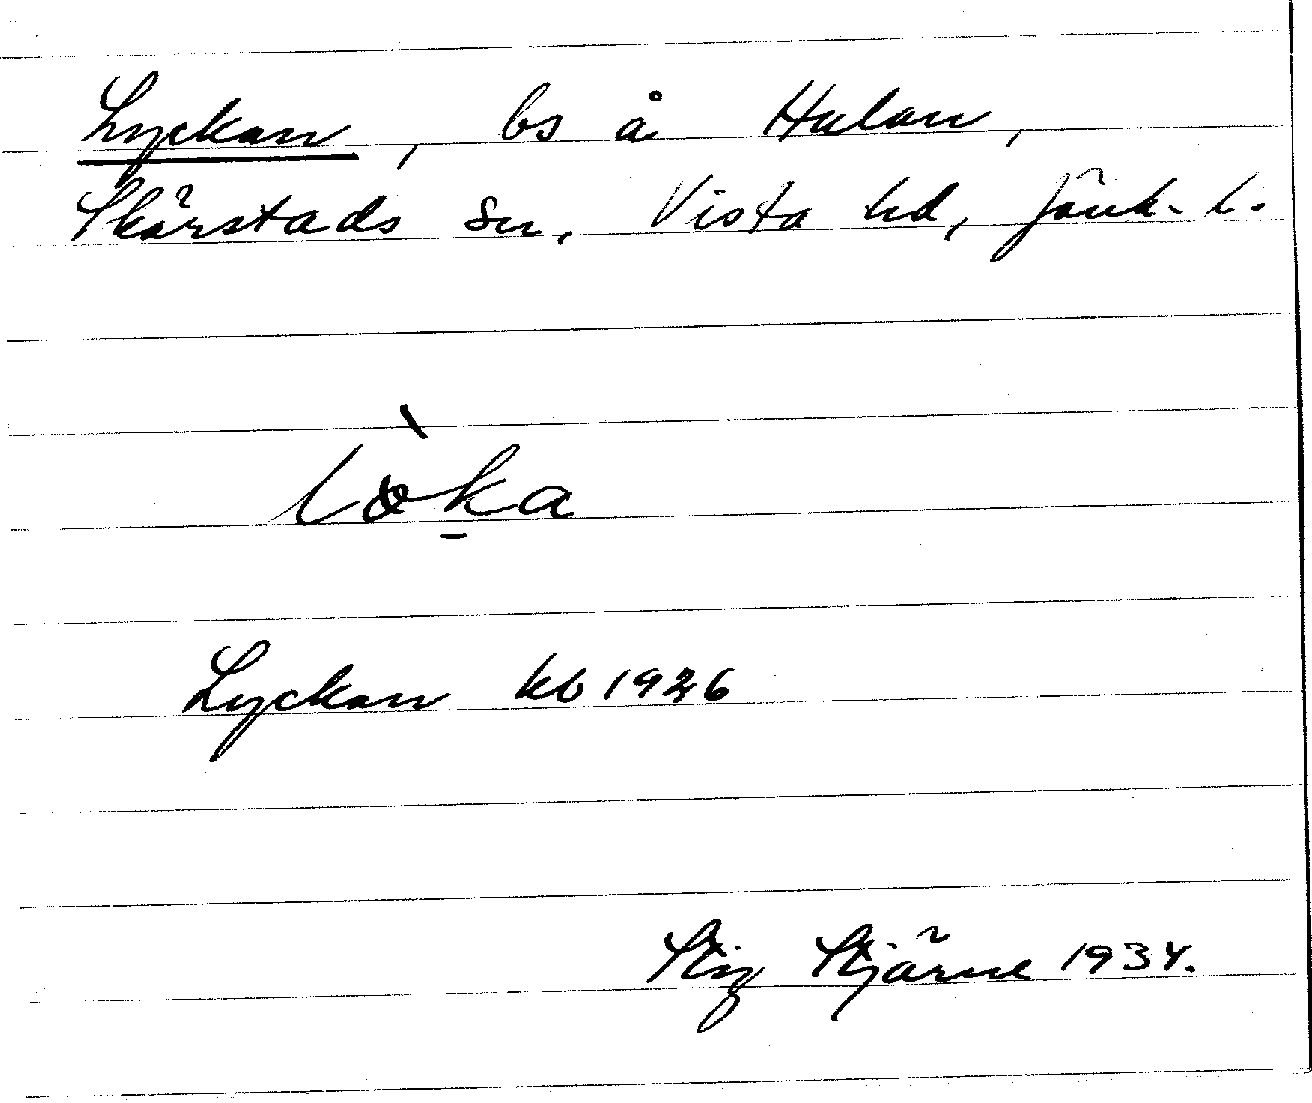 Lyckan, bs å Hulan,
Skärstads sn, Vista hd, Jönk. l.
lò̀ka
Lyckan kb 1926
Stig Stjärne 1934.